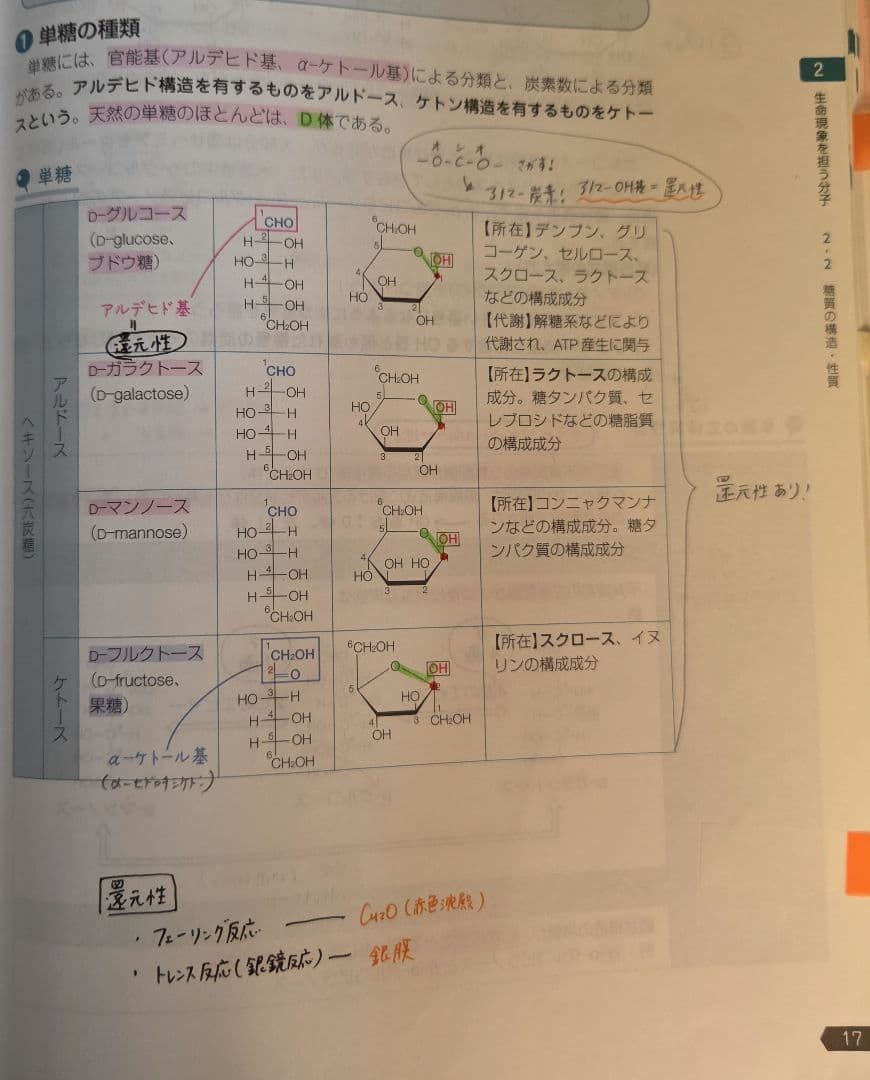 ❶ 単糖の種類
単糖には、官能基(アルデヒド基、α-ケトール基)による分類と、炭素数による分類
がある。アルデヒド構造を有するものをアルドース、ケトン構造を有するものをケトー
スという。天然の単糖のほとんどは、D体である。
オ シ オ
-O-C-O- さがす!
↳ アノマー炭素! アノマーOH基=還元性
単糖
ヘキソース(六炭糖)
アルドース
D-グルコース
(D-glucose、
ブドウ糖)
アルデヒド基
=
還元性
1CHO
H 2 OH
HO 3 H
H 4 OH
H 5 OH
6CH2OH
6CH2OH
5 O OH
4 OH 1
HO 3 2
OH
【所在】デンプン、グリ
コーゲン、セルロース、
スクロース、ラクトース
などの構成成分
【代謝】解糖系などにより
代謝され、ATP産生に関与
D-ガラクトース
(D-galactose)
1CHO
H 2 OH
HO 3 H
HO 4 H
H 5 OH
6CH2OH
6CH2OH
HO 5 O OH
4 OH 1
3 2
OH
【所在】ラクトースの構成
成分。糖タンパク質、セ
レブロシドなどの糖脂質
の構成成分
D-マンノース
(D-mannose)
1CHO
HO 2 H
HO 3 H
H 4 OH
H 5 OH
6CH2OH
6CH2OH
5 O OH
4 OH HO
HO 3 2
【所在】コンニャクマンナ
ンなどの構成成分。糖タ
ンパク質の構成成分
還元性あり!
ケトース
D-フルクトース
(D-fructose、
果糖)
α-ケトール基
(α-ヒドロキシケトン)
1CH2OH
2 =O
HO 3 H
H 4 OH
H 5 OH
6CH2OH
6CH2OH
O OH
5 HO 2
4 3 1
OH CH2OH
【所在】スクロース、イヌ
リンの構成成分
還元性
・フェーリング反応 — Cu2O(赤色沈殿)
・トレンス反応(銀鏡反応) — 銀膜
2
生命現象を担う分子 2・2 糖質の構造・性質
17